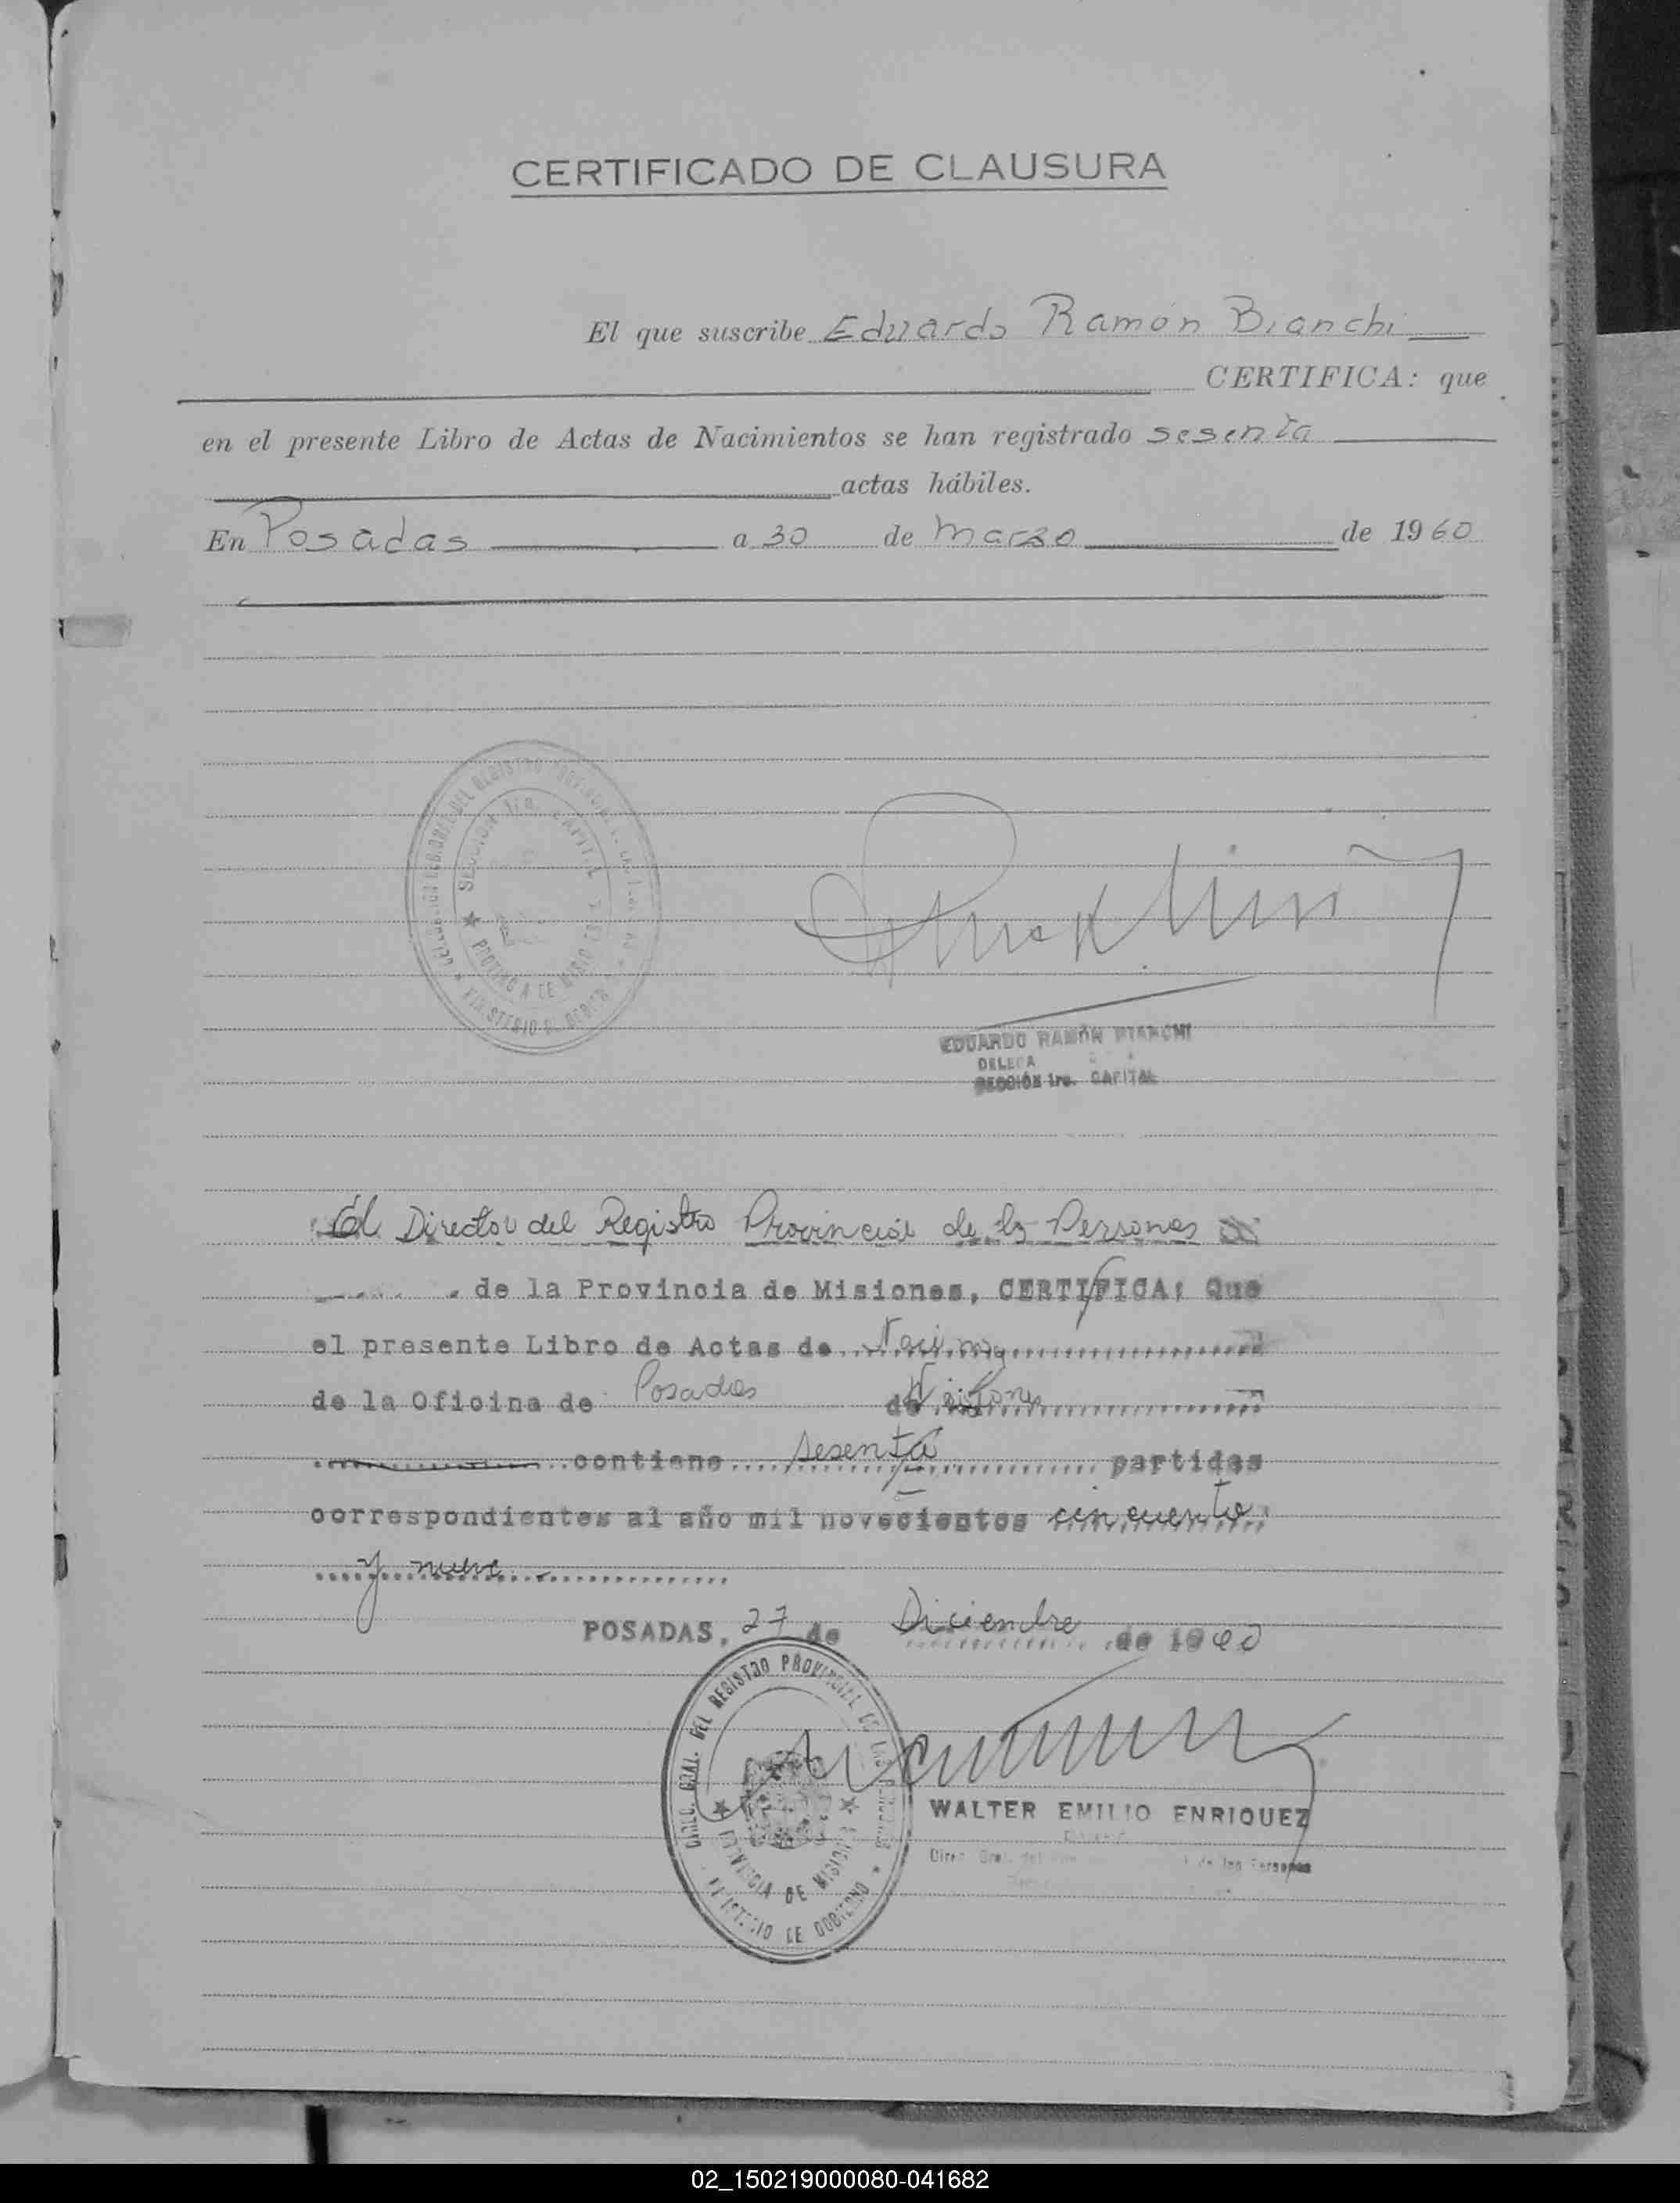 CERTIFICADO DE CLAUSURA
El que suscribe Eduardo Ramón Bianchi
CERTIFICA: que
en el presente Libro de Actas de Nacimientos se han registrado sesenta
actas hábiles.
En Posadas a 30 de Marzo de 1960
SECCION 1ra. CAPITAL
EDUARDO RAMÓN BIANCHI
SECCIÓN 1ra. CAPITAL
El Director del Registro Provincial de las Personas
de la Provincia de Misiones, CERTIFICA: Que
el presente Libro de Actas de
de la Oficina de Posadas de Misiones
contiene sesenta partidas
correspondientes al año mil novecientos cincuenta
y nueve
POSADAS, 27 de Diciembre de 1960
DIREC. GRAL. DEL REGISTRO PROVINCIAL DE LAS PERSONAS
PROVINCIA DE MISIONES
MINISTERIO DE GOBIERNO
WALTER EMILIO ENRIQUEZ
02_150219000080-041682